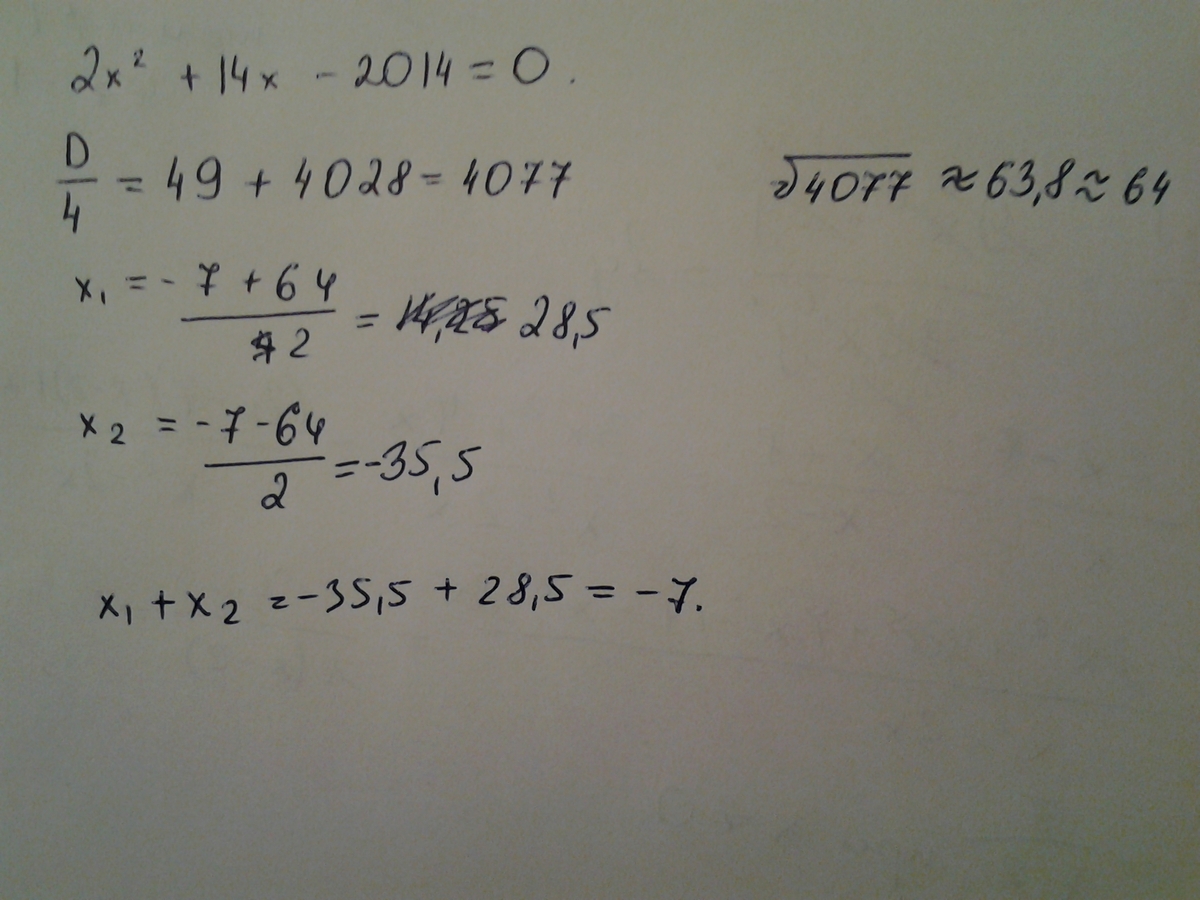 2x² + 14x - 2014 = 0.
D/4 = 49 + 4028 = 4077
√4077 ≈ 63,8 ≈ 64
x₁ = (-7 + 64)/2 = 28,5
x₂ = (-7 - 64)/2 = -35,5
x₁ + x₂ = -35,5 + 28,5 = -7.